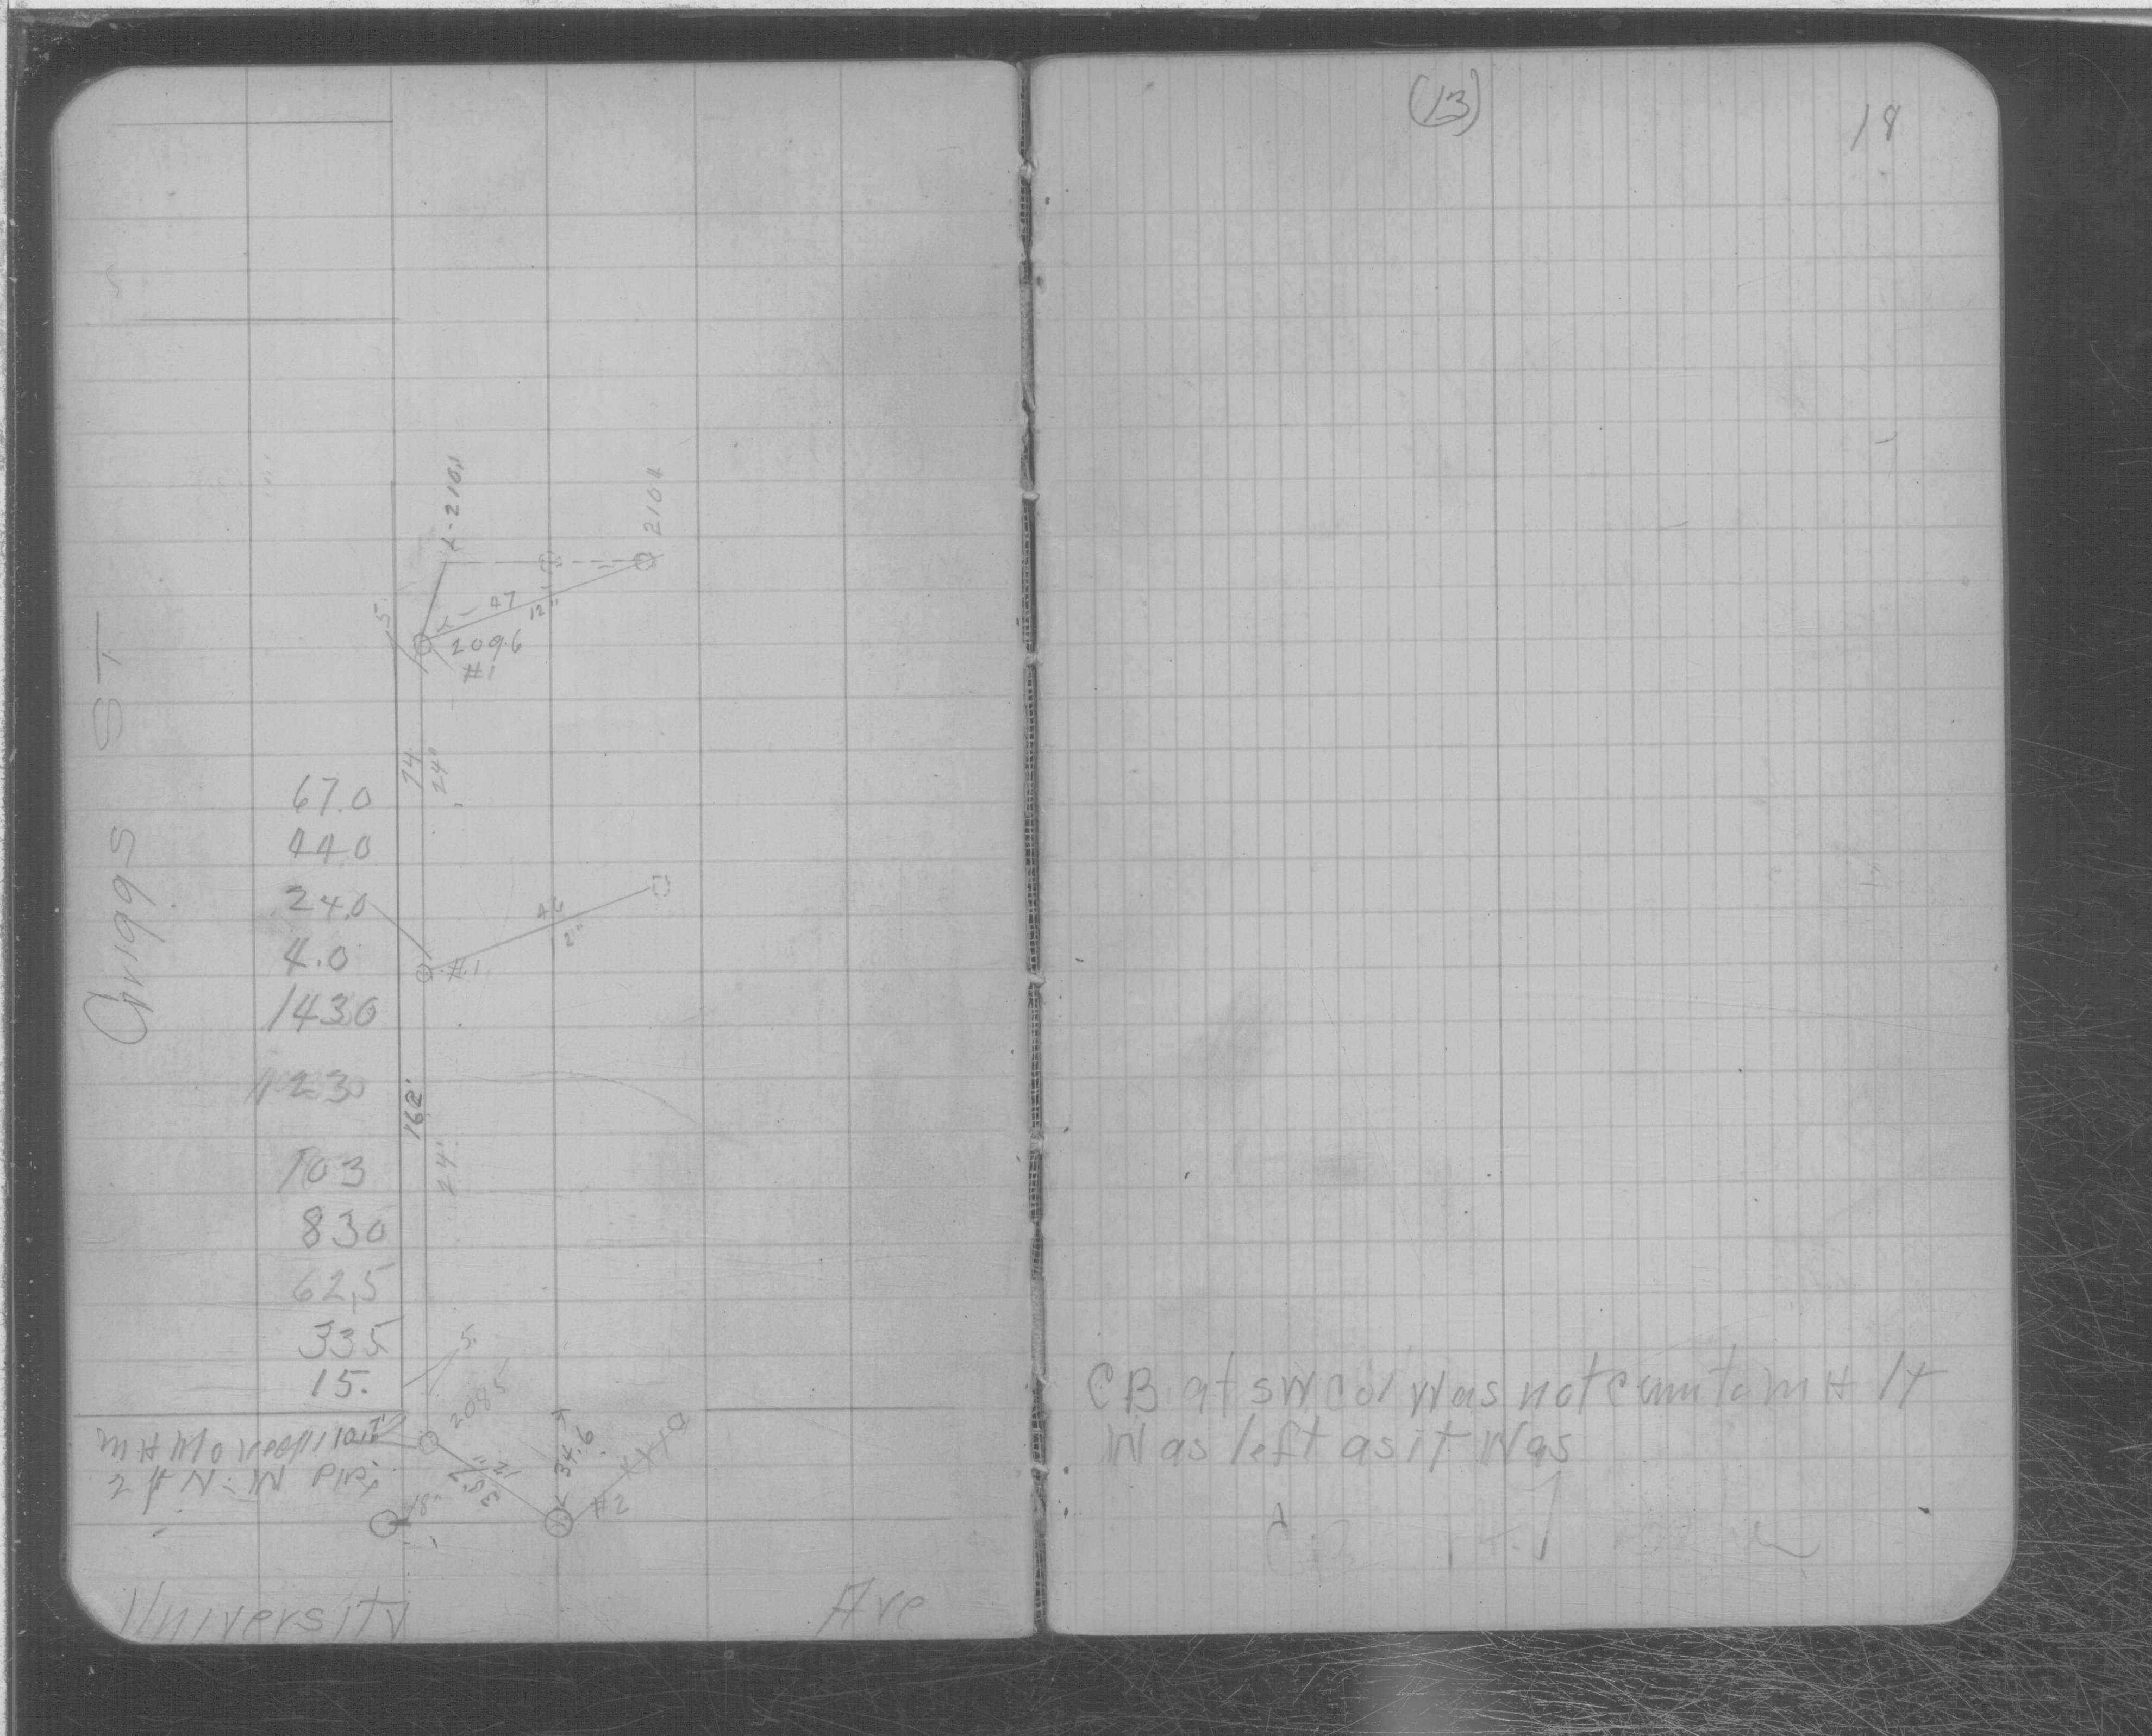 (13)
18
Griggs ST
x-210.1
2104
5.
47
12"
209.6
#1
74
24"
67.0
44.0
24.0
4.0
143.0
123
103
830
62.5
335
15.
46
#1
162'
24"
5.
2085
34.6
38'
12"
#2
18"
2 ft N-W
University Ave
CB at SW Cor Was not to MH It
Was left as it Was
CB